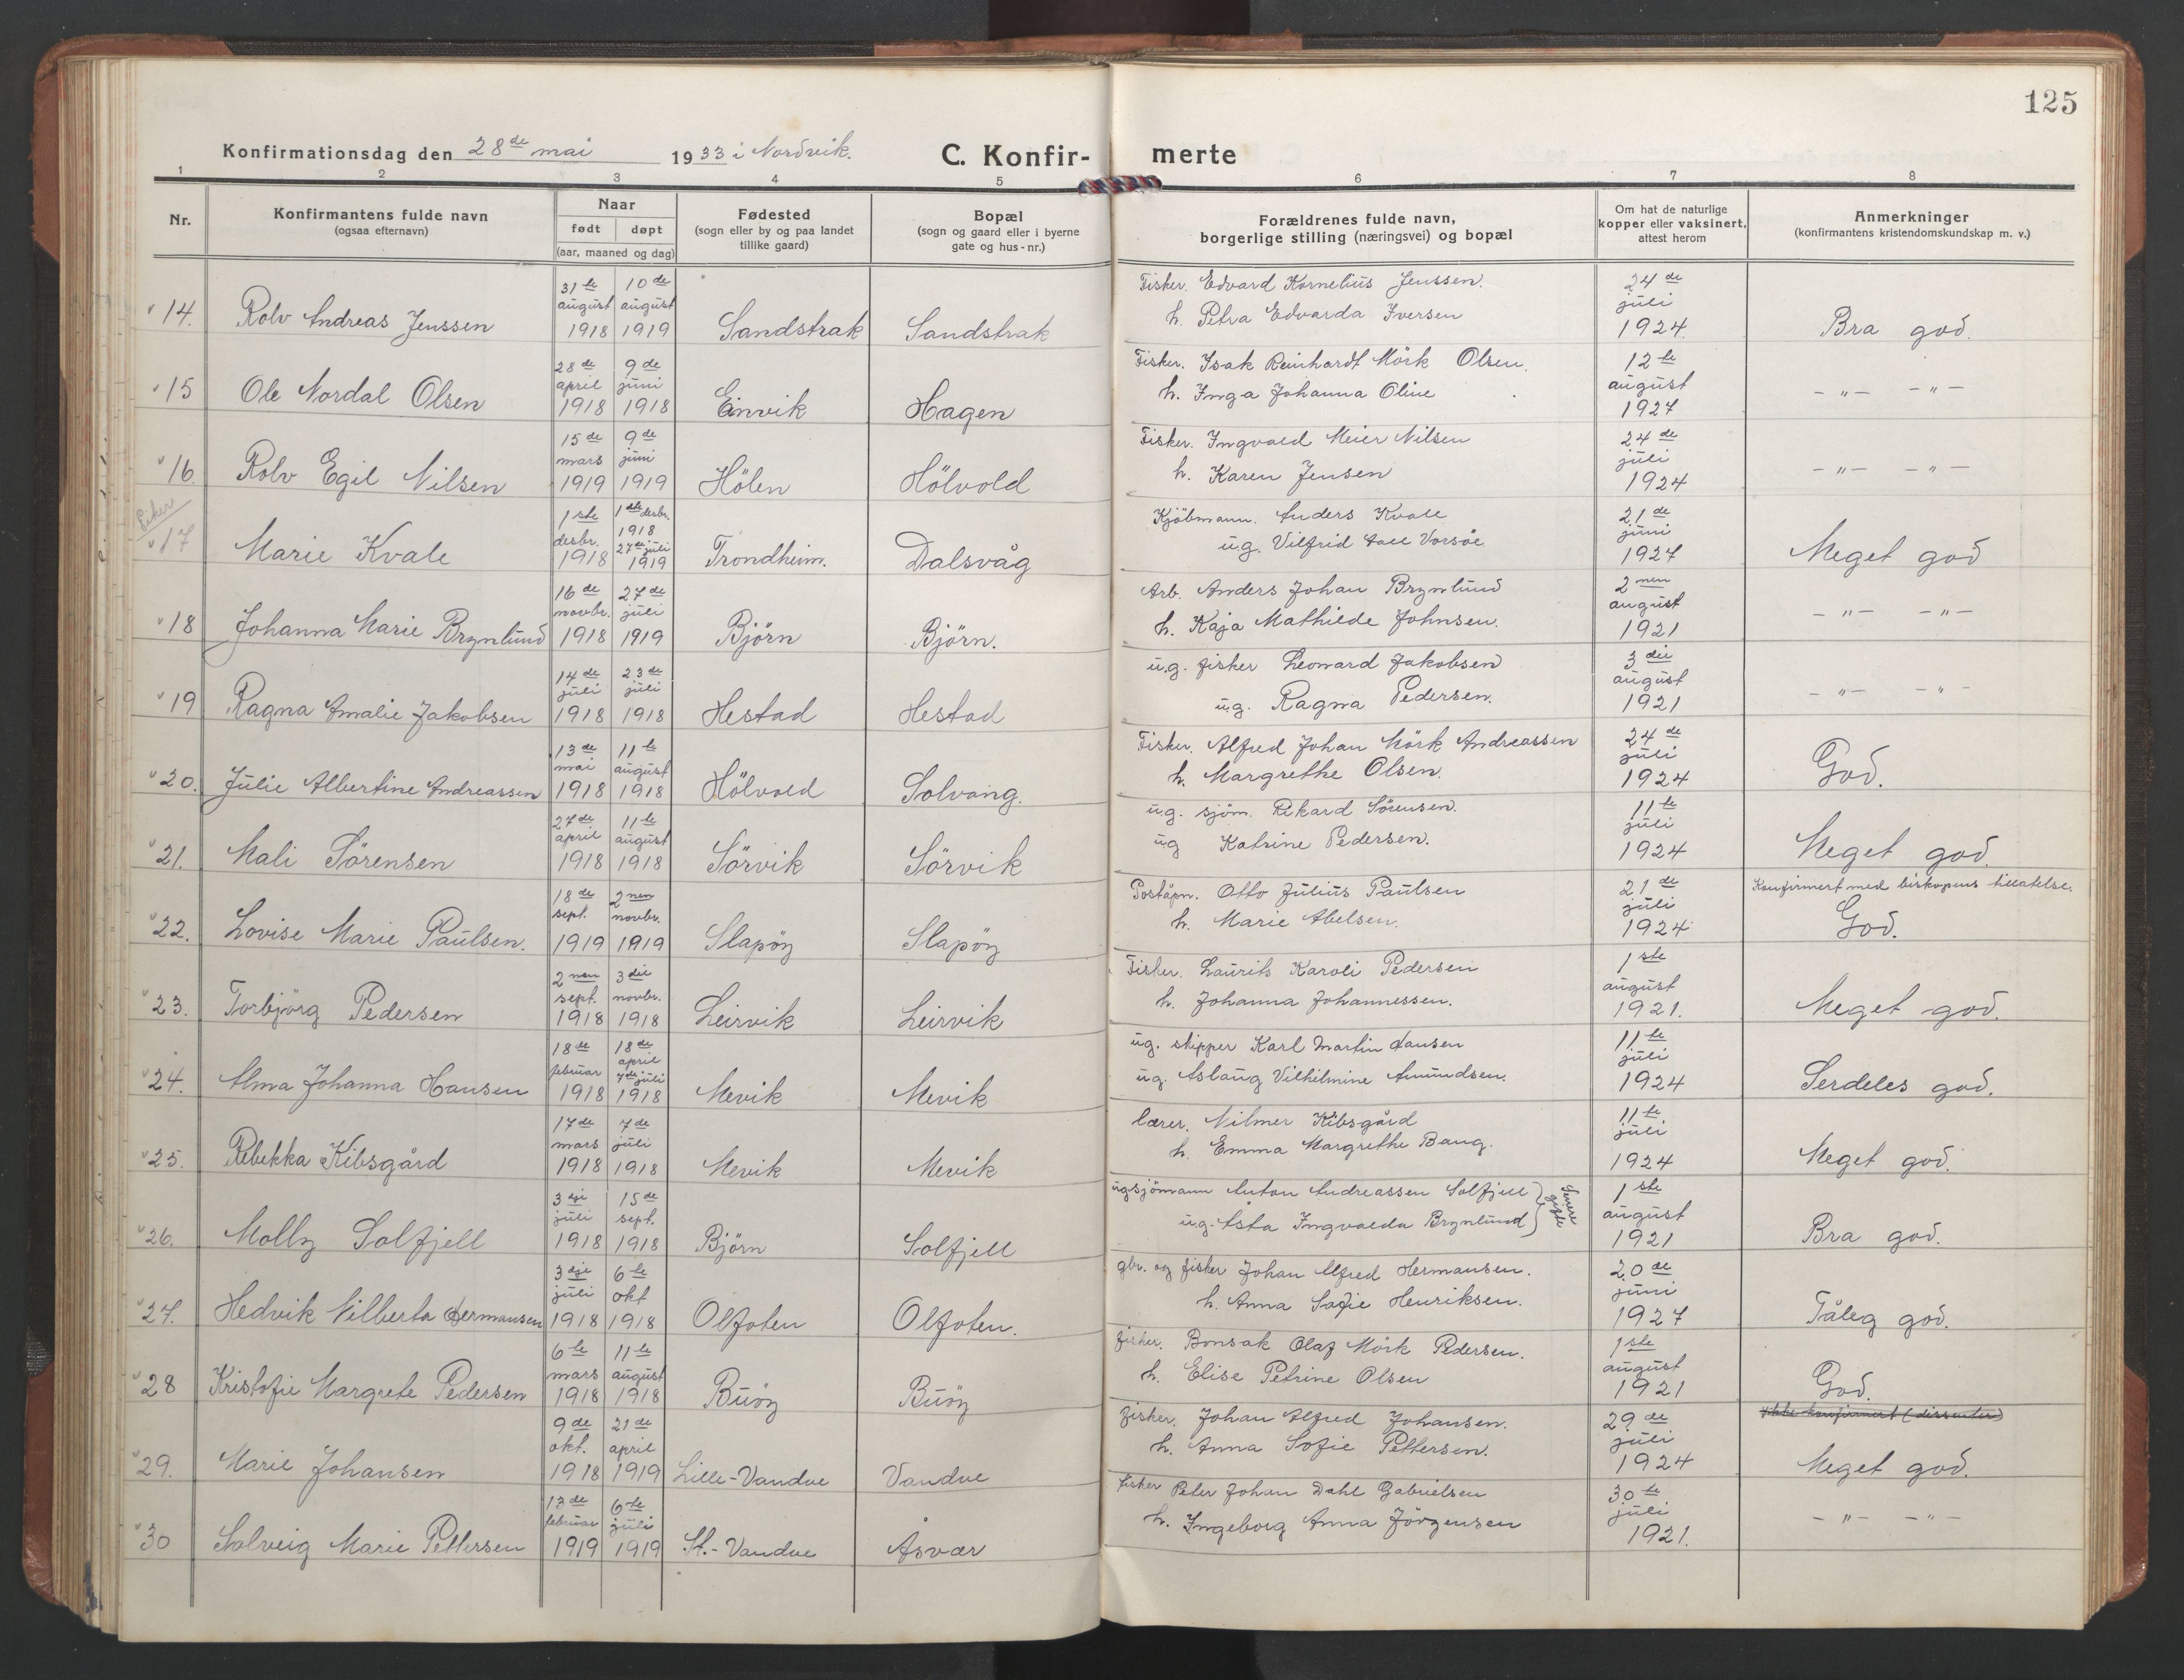 125
Konfirmationsdag den 28de mai 1933 i Nordvik.
C. Konfirmerte
1 2 3 4 5 6 7 8
Nr.
Konfirmantens fulde navn
(ogsaa efternavn)
Naar
født døpt
(aar, maaned og dag)
Fødested
(sogn eller by og paa landet
tillike gaard)
Bopæl
(sogn og gaard eller i byerne
gate og hus-nr.)
Forældrenes fulde navn,
borgerlige stilling (næringsvei) og bopæl
Om hat de naturlige
kopper eller vaksinert,
attest herom
Anmerkninger
(konfirmantens kristendomskundskap m. v.)
14. Rolv Andreas Jenssen 31te august 1918 10de august 1919 Sandstrak Sandstrak
Fisker. Edvard Kornelius Jenssen.
h. Petra Edvarda Iversen
24de juli 1924. Bra god.
15 Ole Nordal Olsen 28de april 1918 9de juni 1918 Einvik Hagen
Fisker. Isak Reinhardt Mörk Olsen.
h. Inga Johanna Oline
12te august 1927 -"- -"-
16. Rolv Egil Nilsen 15de mars 1919 9de juni 1919 Hölen Hölvold
Fisker. Ingvald Meier Nilsen
h. Karen Jensen
24de juli 1924 -"- -"-
17 Marie Kvale 1ste desbr. 1918 1ste desbr. 1918 27de juli 1919 Trondheim. Dalsvåg
Kjöbmann. Anders Kvale
ug. Vilfrid Vorsöe
21de juni 1927 Meget god
18 Johanna Marie Brynlund 16de novbr. 1918 27de juli 1919 Björn Björn.
Arb. Anders Johan Brynlund
h. Kaja Mathilde Johnsen.
2nen august 1921 -"- -"-
19 Ragna Amalie Jakobsen 14de juli 1918 23de juli 1918 Hestad Hestad
u.g. fisker Leonard Jakobsen
u.g. Ragna Pedersen.
3die august 1921 -"- -"-
20. Julie Albertine Andreassen 13de mai 1918 11te august 1918 Hölvold Solvang.
Fisker. Alfred Johan Mörk Andreassen
h. Margrethe Olsen.
24de juli 1924 God.
21. Mali Sörensen 27de april 1918 11te august 1918 Sörvik Sörvik
ug. sjöm. Rikard Sörensen.
ug Katrine Pedersen.
11te juli 1924 Meget god.
22. Lovise Marie Paulsen. 18de sept. 1919 2nen novbr. 1919 Slapöy Slapöy
Poståpn. Otto Julius Paulsen
h. Marie Abelsen.
21de juli 1924 Konfirmert med biskopens tillatelse.
God.
23. Torbjörg Pedersen 2nen sept. 1918 3die novbr. 1918 Leirvik Leirvik
Fisker. Laurits Karoli Pedersen
h. Johanna Johannessen.
1ste august 1921. Meget god.
24. Alma Johanna Hansen 18de februar 1918 18de april 7de juli 1918 Mevik Mevik
ug. skipper Karl Martin Hansen
ug. Aslaug Vilhelmine Amundsen.
11te juli 1924 Serdeles god.
25. Rebekka Kibsgård 17de mars 1918 7de juli 1918 Mevik Mevik
lærer. Nilmer Kibsgård
h. Emma Margrethe Bang.
11te juli 1924 Meget god.
26. Molly Solfjell 3dje juli 1918 15de sept. 1918 Björn Solfjell
ug sjömann Anton Andreassen Solfjell
u.g. Asta Ingvalda Brynlund
Senere gifte
1ste august 1921 Bra god.
27. Hedvik Vilberta Hermansen 3dje juli 1918 6te okt 1918 Olfoten Olfoten.
gbr. og fisker Johan Alfred Hermansen.
h. Anna Sofie Henriksen.
20de juni 1927 Tåleg god.
28 Kristofie Margrete Pedersen 6te mars 1918 11te august 1918 Buöy Buöy
fisker. Bonsak Olaf Mörk Pedersen.
h. Elise Petrine Olsen
1ste august 1921 God.
29. Marie Johansen 9de okt. 1918 21de april 1919 Lille-Vandve Vandve
fisker. Johan Alfred Johansen.
h. Anna Sofie Pettersen.
29de juli 1924 Ikke konfirmert (dissenter)
Meget god.
30 Solveig Marie Pettersen 13de februar 1919 6te juli 1919 St.-Vandve Åsvær
fisker Peter Johan Dahl Gabrielsen
h. Ingeborg Anna Jörgensen
30te juli 1921. -"- -"-